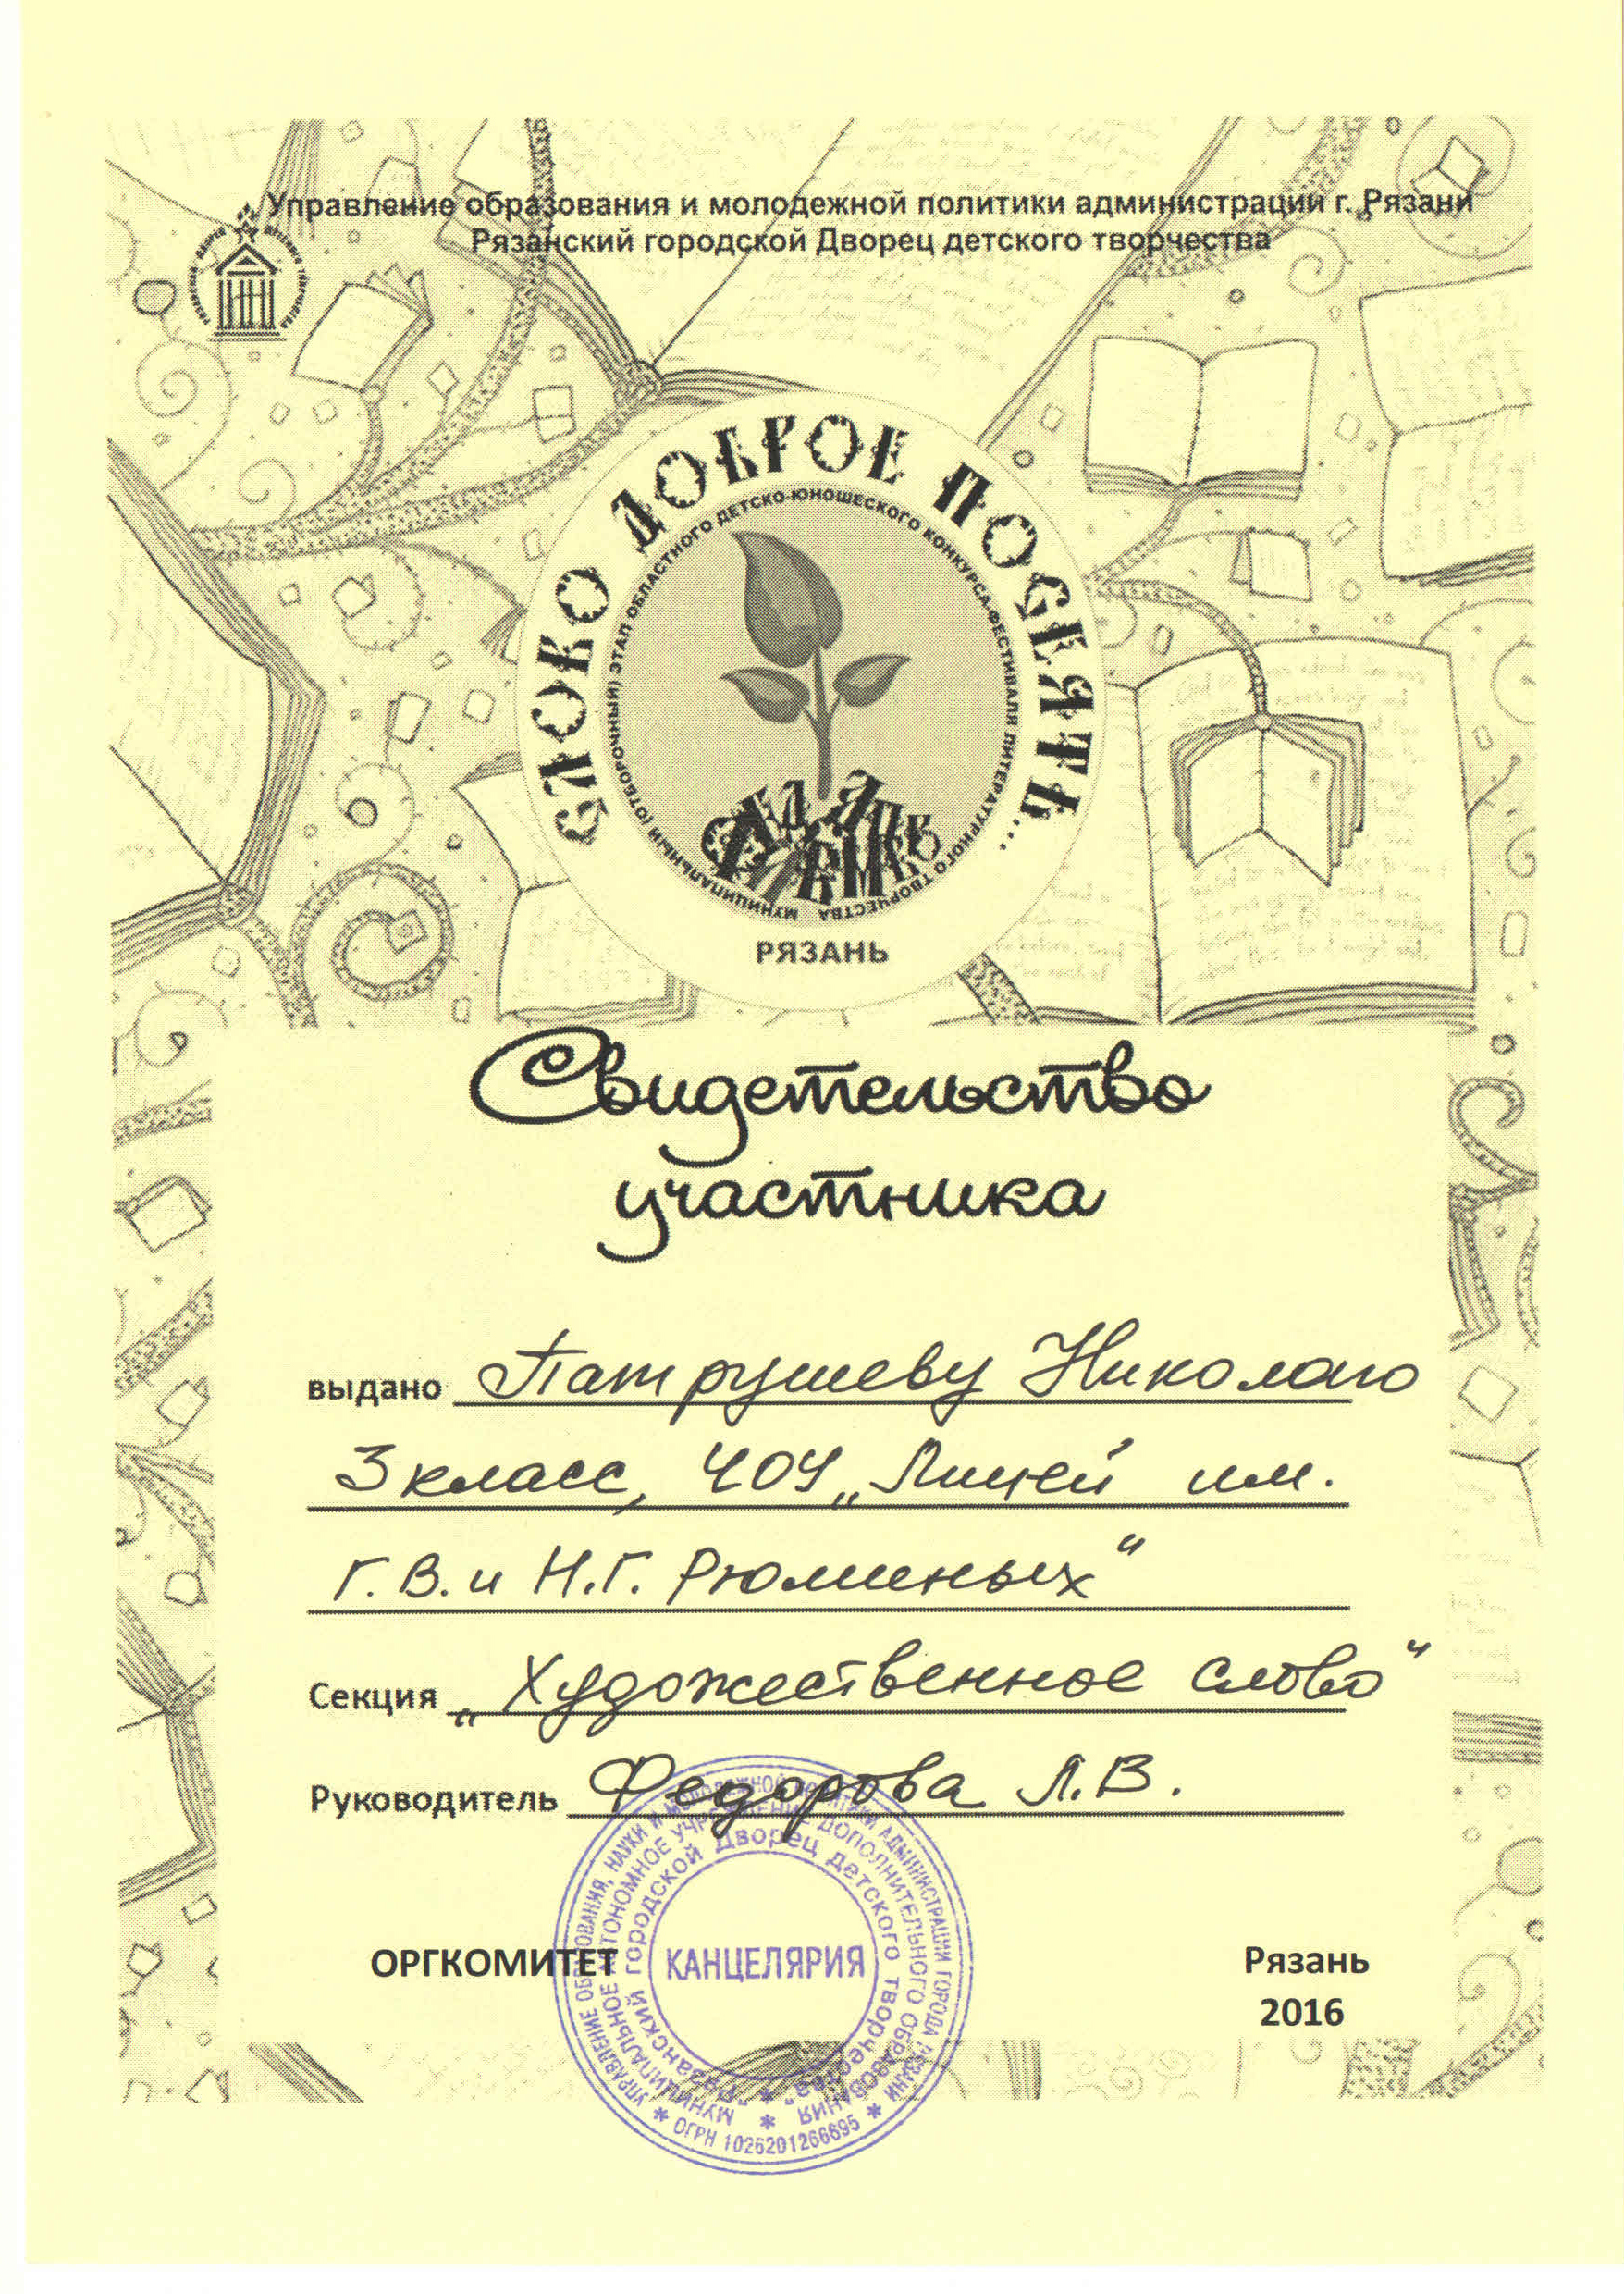 Управление образования и молодежной политики администрации г. Рязани
Рязанский городской Дворец детского творчества
РЯЗАНСКИЙ ДВОРЕЦ ДЕТСКОГО ТВОРЧЕСТВА
СЛОВО ДОБРОЕ ПОСЕЯТЬ...
МУНИЦИПАЛЬНЫЙ (ОТБОРОЧНЫЙ) ЭТАП ОБЛАСТНОГО ДЕТСКО-ЮНОШЕСКОГО КОНКУРСА-ФЕСТИВАЛЯ ЛИТЕРАТУРНОГО ТВОРЧЕСТВА
РЯЗАНЬ
Свидетельство
участника
выдано Патрушеву Николаю
3 класс, ЧОУ „Лицей им.
Г.В. и Н.Г. Рюминых“
Секция „Художественное слово“
Руководитель Федорова Л.В.
УПРАВЛЕНИЕ ОБРАЗОВАНИЯ, НАУКИ И МОЛОДЕЖНОЙ ПОЛИТИКИ АДМИНИСТРАЦИИ ГОРОДА РЯЗАНИ
МУНИЦИПАЛЬНОЕ АВТОНОМНОЕ УЧРЕЖДЕНИЕ ДОПОЛНИТЕЛЬНОГО ОБРАЗОВАНИЯ
"Рязанский городской Дворец детского творчества"
ОРГКОМИТЕТ КАНЦЕЛЯРИЯ Рязань
2016
* ОГРН 1026201266695 *